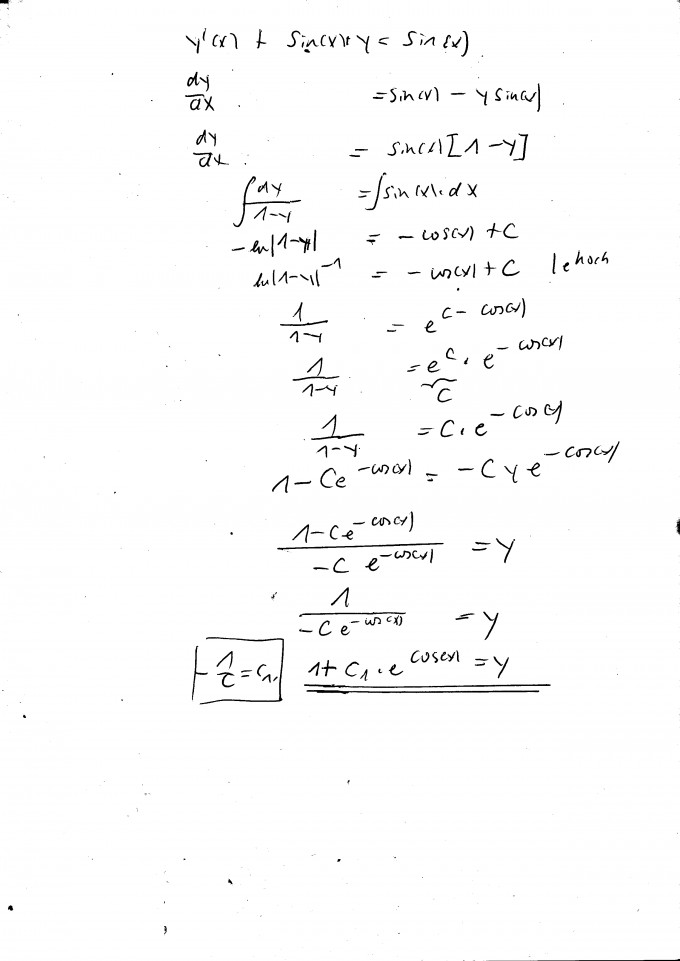 y'(x) + sin(x)·y = sin(x)
dy/dx = sin(x) - y sin(x)
dy/dx = sin(x)[1-y]
∫ dy/1-y = ∫sin(x)·dx
-ln|1-y| = -cos(x) + C
ln|1-y|^-1 = -cos(x) + C | e hoch
1/1-y = e^C-cos(x)
1/1-y = e^C · e^-cos(x)
C
1/1-y = C·e^-cos(x)
1-Ce^-cos(x) = -Cye^-cos(x)
1-Ce^-cos(x)/-C e^-cos(x) = y
1/-Ce^-cos(x) = y
-1/C = C₁, 1+C₁·e^cos(x) = y